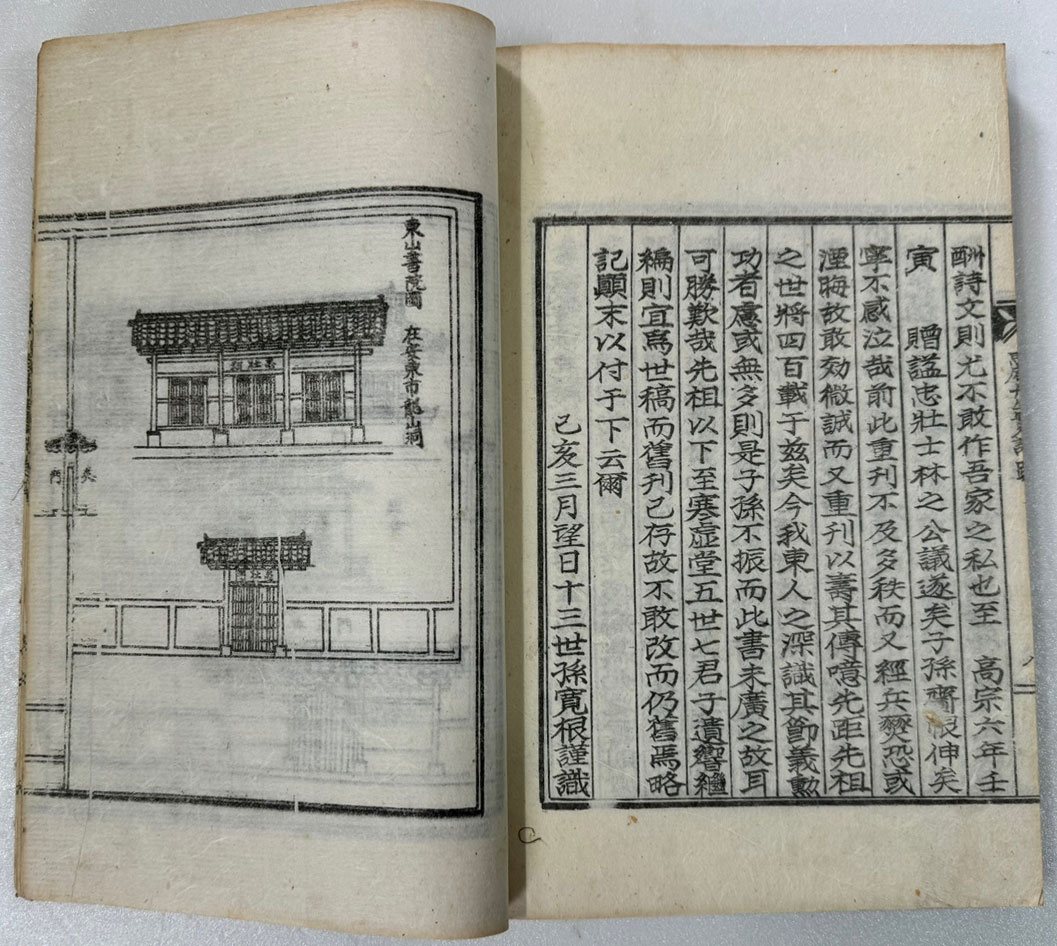 酬詩文則尤不敢作吾家之私也至 高宗六年壬
寅 贈諡忠壯士林之公議遂矣子孫齎恨伸矣
寧不感泣哉前此重刊不及多秩而又經兵燹恐或
湮晦故敢効微誠而又重刊以壽其傳噫先距先祖
之世將四百載于玆矣今我東人之深識其節義勳
功者慮或無多則是子孫不振而此書未廣之故耳
可勝歎哉先祖以下至寒虛堂五世七君子遺響繼
編則宜爲世稿而舊刊已存故不敢改而仍舊焉略
記顚末以付于下云爾
己亥三月望日十三世孫寬根謹識
東山書院圖 在安東市龍山洞
門